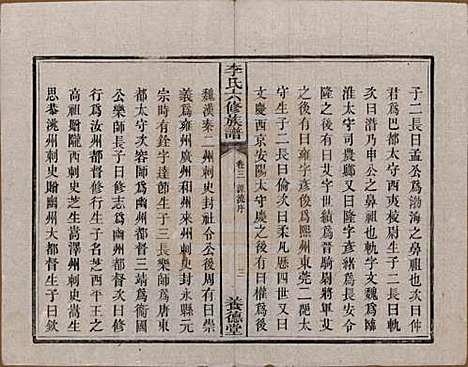 子二長曰孟公爲渤海之鼻祖也次曰
君爲巴郡太守西夷棱尉生子二長曰
次曰潛乃申公之鼻祖也執字文魏爲隴
淮太守司農鄉又曰隆字彥緒爲長安令
隆之後有曰艾字世績爲晉騎尉將軍艾
之後有曰雍字彥俊爲熙州東莞二郡太
守生子二長曰倫次曰柔凡歷四世又曰
文慶西京安陽太守慶之後有曰權爲後
李氏六修族譜
卷三 源流序
三
養德堂
魏漢秦二州刺史封社令公後周有曰崇
義爲雍州廣州和州來州刺史封永縣元
宗時有銓字達節生于三長樂師爲唐東
都太守次容師爲幽州都督三靖爲衞國
公樂師長子曰修志爲幽州都督次曰修
行爲汝州都督修行生子芝爲西平王之
高祖贈隴西刺史芝生嵩澤州刺史嵩生
思恭洮州刺史贈幽州大都督生子曰欽